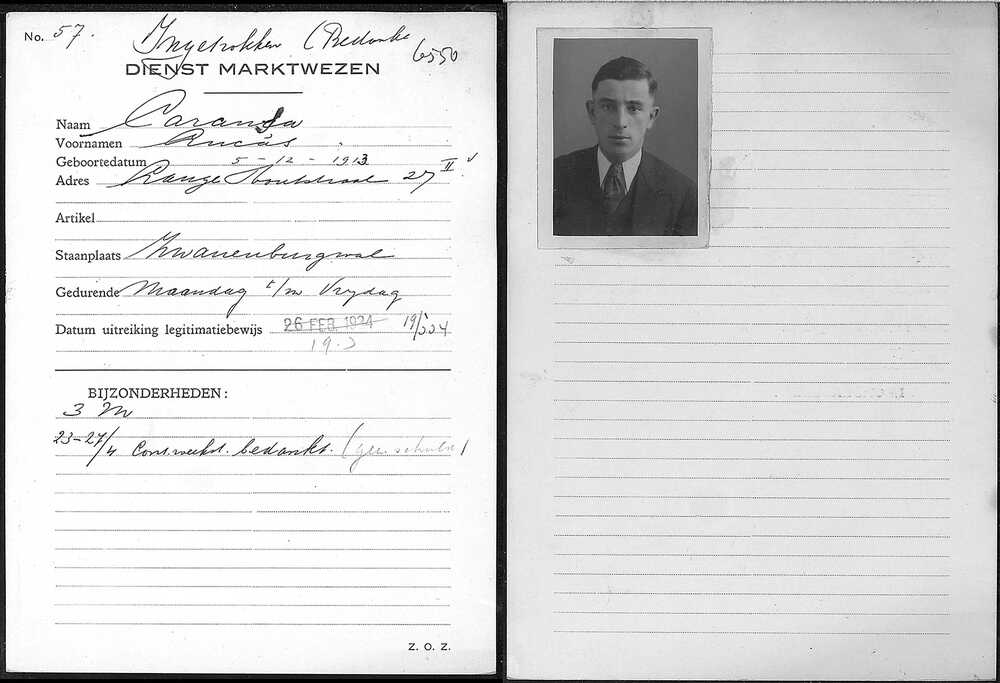 No. 57.
Ingetrokken (Bedankt
6550
DIENST MARKTWEZEN
Naam Caransa
Voornamen Lucas
Geboortedatum 5-12-1913
Adres Lange Houtstraat 27 II
Artikel
Staanplaats Zwanenburgwal
Gedurende Maandag t/m Vrydag
Datum uitreiking legitimatiebewijs 26 FEB. 1934
BIJZONDERHEDEN:
3 M
23-27/4 Cont. bedankt. (geen schuld)
Z. O. Z.